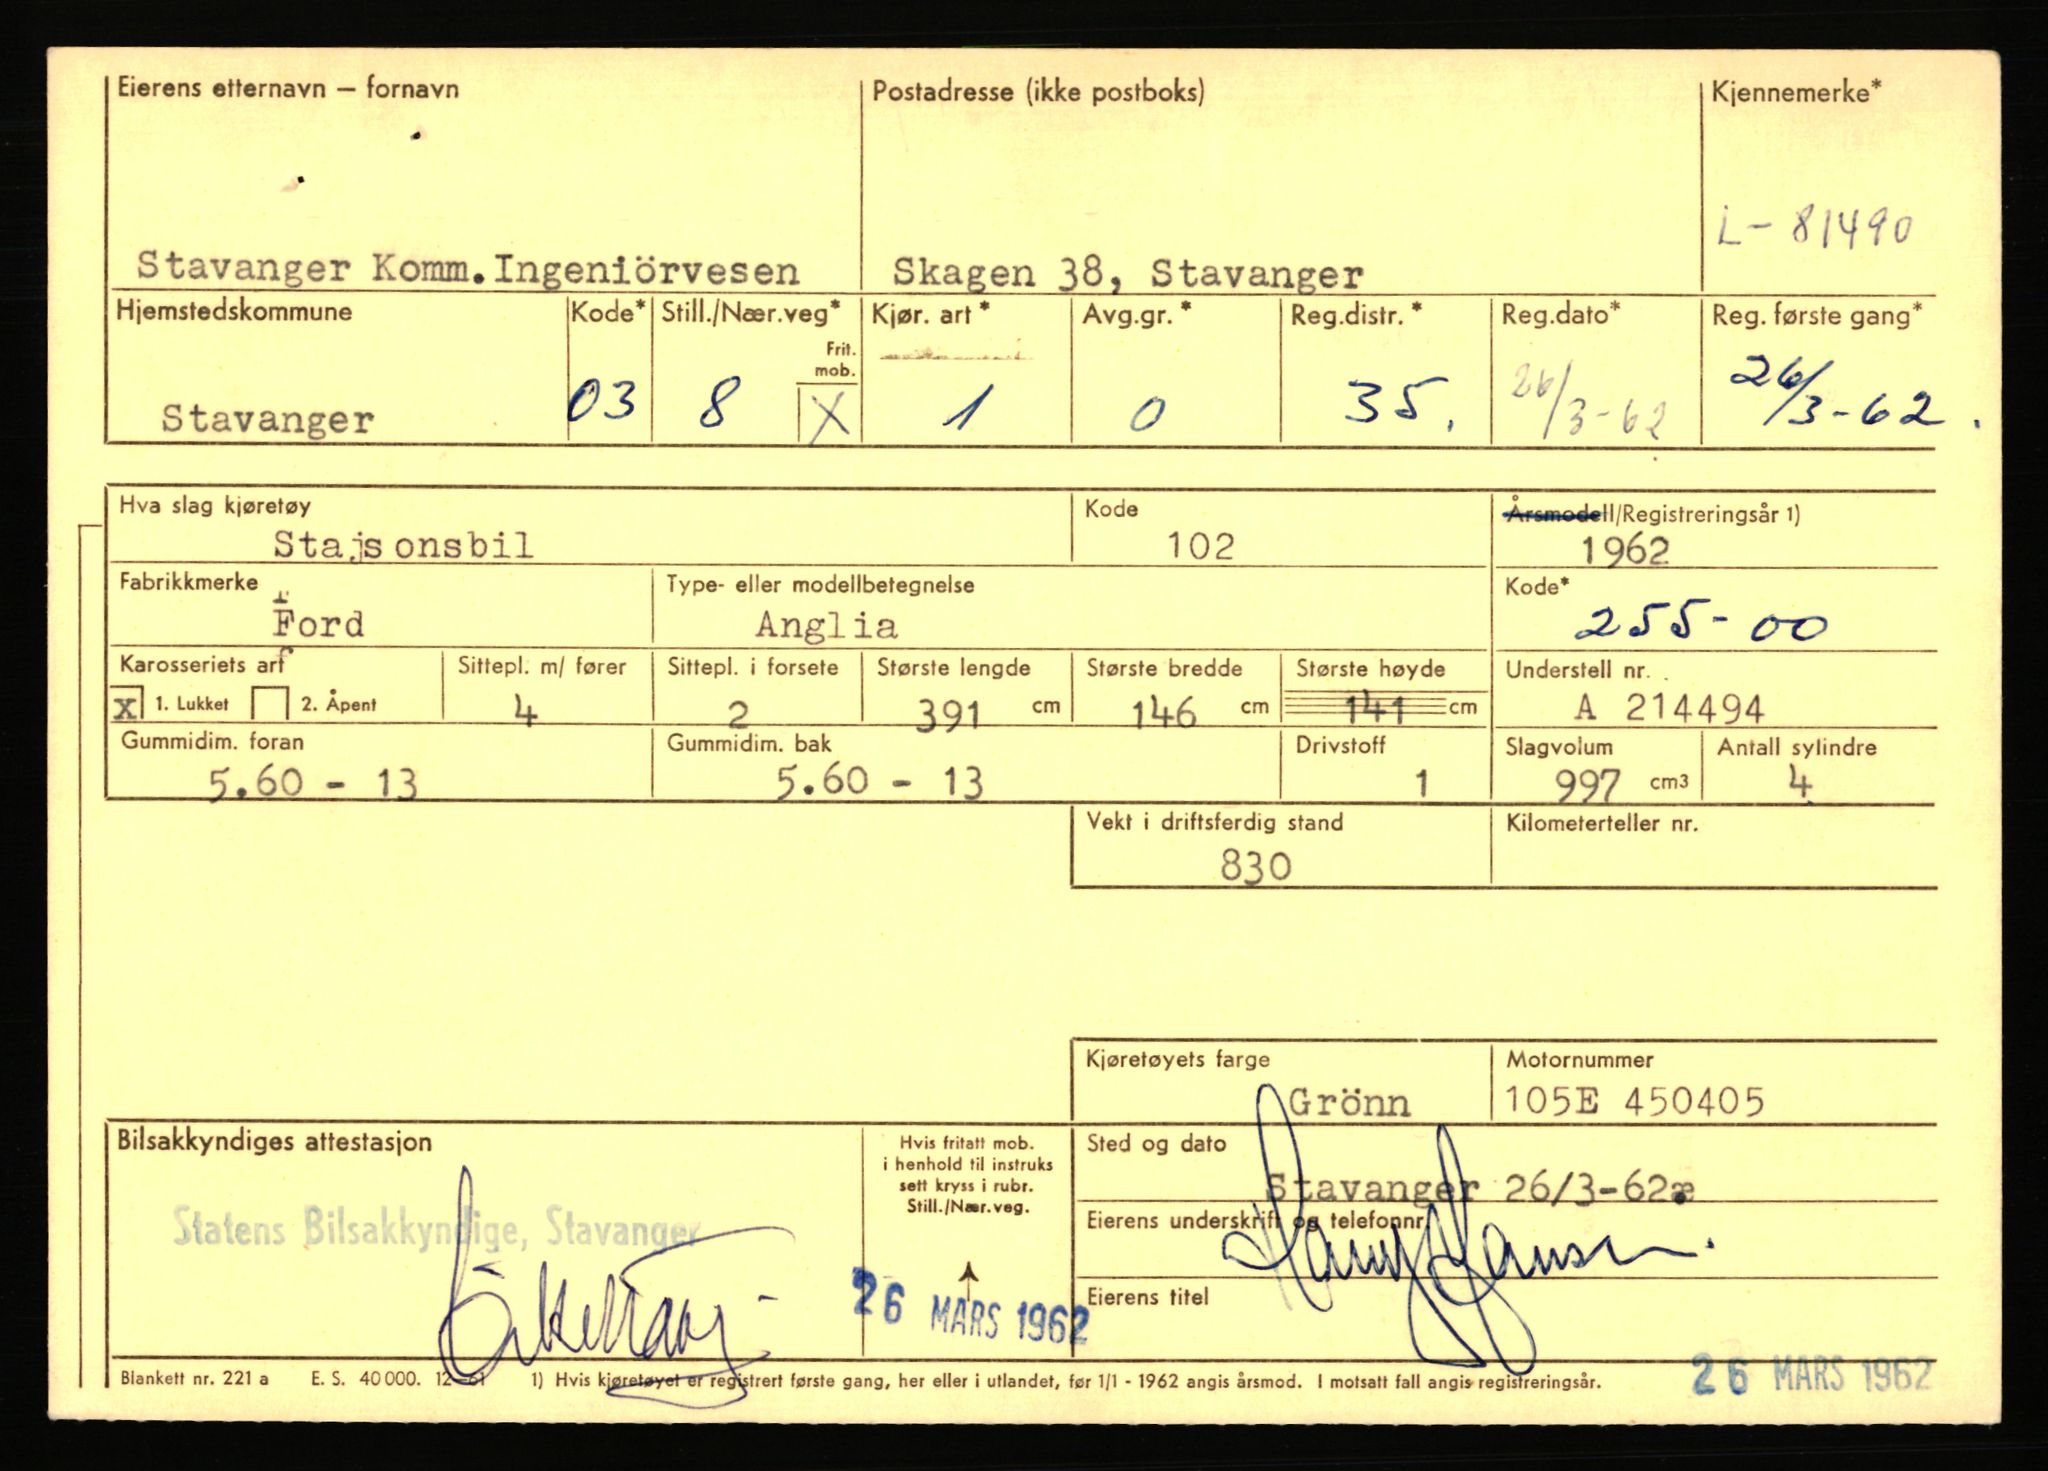 Eierens etternavn – fornavn Postadresse (ikke postboks) Kjennemerke*
L- 81490
Stavanger Komm.Ingeniörvesen Skagen 38, Stavanger
Hjemstedskommune Kode* Still./Nær.veg* Kjør. art* Avg.gr.* Reg.distr.* Reg.dato* Reg. første gang*
Frit.
mob.
Stavanger 03 8 X 1 0 35. 26/3-62 26/3-62.
Hva slag kjøretøy Kode Årsmodell/Registreringsår 1)
Stajsonsbil 102 1962
Fabrikkmerke Type- eller modellbetegnelse Kode*
Ford Anglia 255-00
Karosseriets art Sittepl. m/ fører Sittepl. i forsete Største lengde Største bredde Største høyde Understell nr.
x 1. Lukket 2. Åpent 4 2 391 cm 146 cm 141 cm A 214494
Gummidim. foran Gummidim. bak Drivstoff Slagvolum Antall sylindre
5.60 - 13 5.60 - 13 1 997 cm3 4
Vekt i driftsferdig stand Kilometerteller nr.
830
Kjøretøyets farge Motornummer
Grönn 105E 450405
Bilsakkyndiges attestasjon Hvis fritatt mob. Sted og dato
i henhold til instruks
sett kryss i rubr.
Still./Nær.veg.
Stavanger 26/3-62
Statens Bilsakkyndige, Stavanger Eierens underskrift og telefonnr.
Eierens titel
26 MARS 1962
Blankett nr. 221 a E. S. 40 000. 12-61 1) Hvis kjøretøyet er registrert første gang, her eller i utlandet, før 1/1 - 1962 angis årsmod. I motsatt fall angis registreringsår.
26 MARS 1962